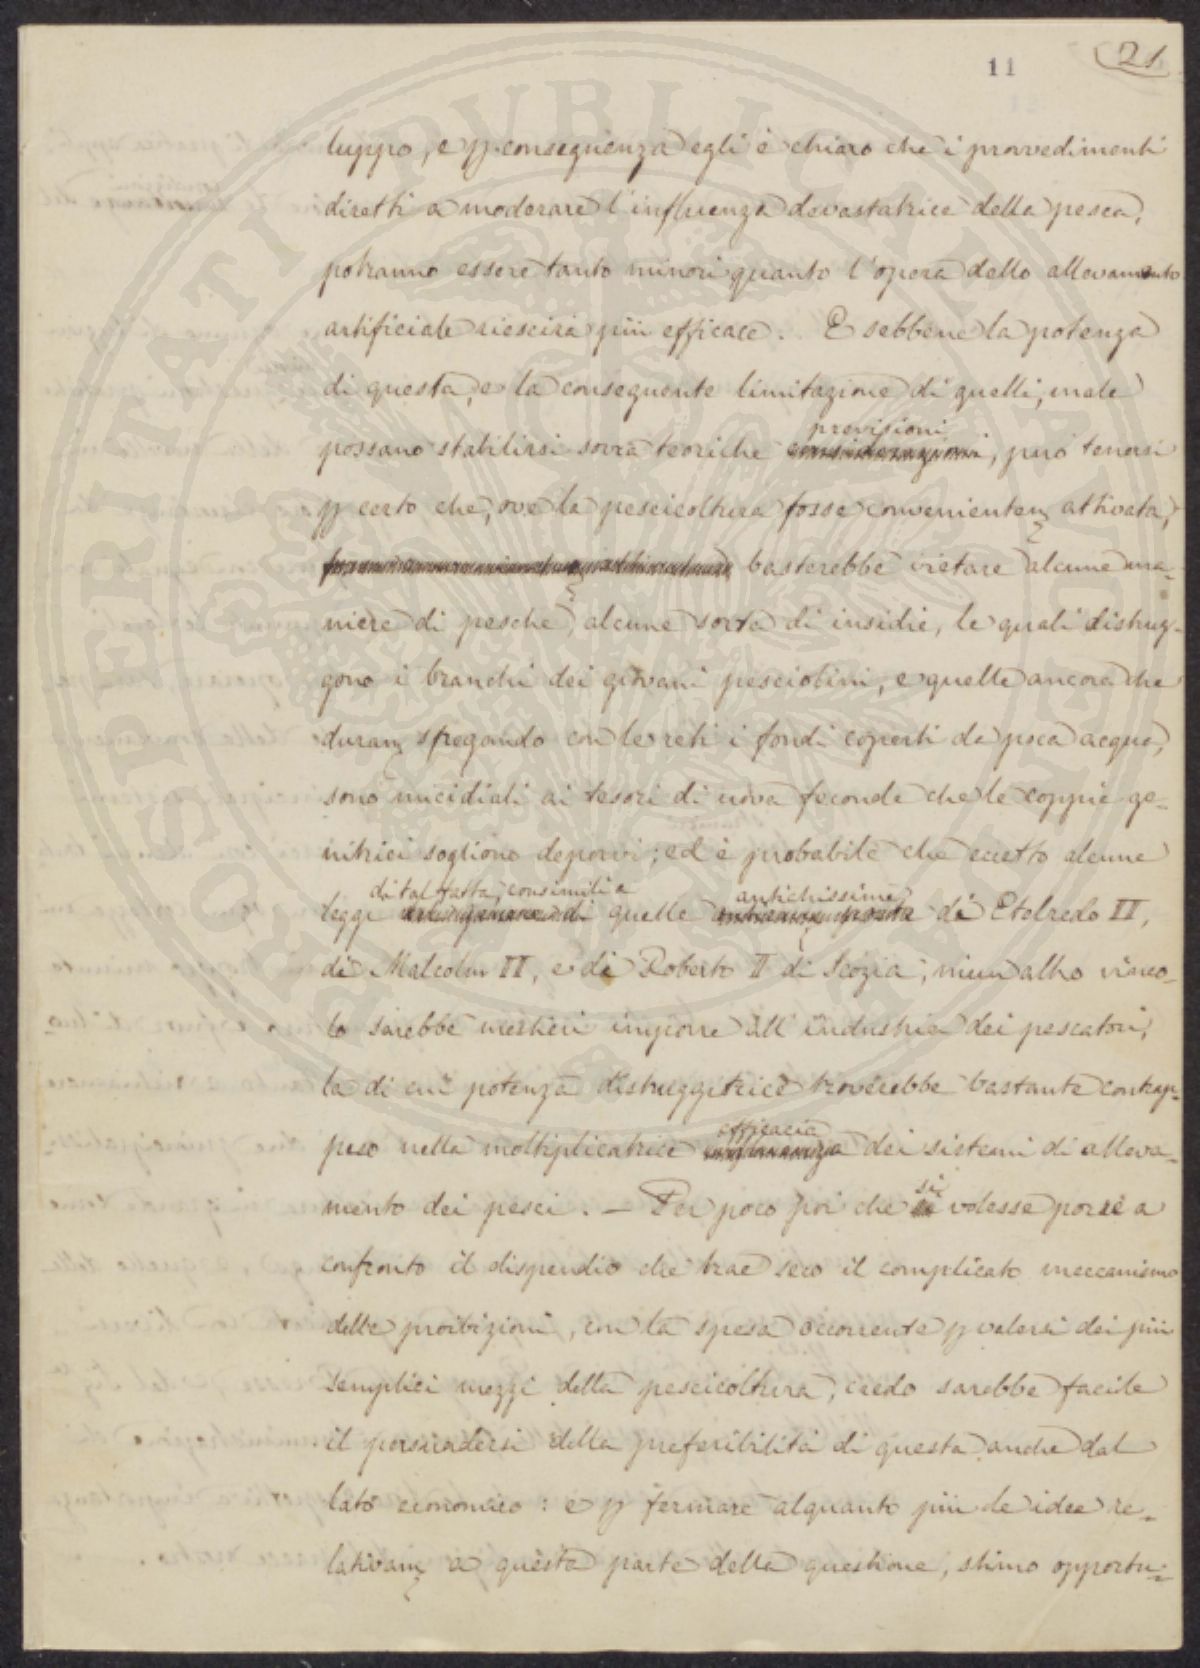 11
21
luppo, e p conseguenza egli è chiaro che i provvedimenti
diretti a moderare l'influenza devastatrice della pesca,
potranno essere tanto minori quanto l'opera dello allevamento
artificiale riescirà più efficace. E sebbene la potenza
di questa, e la conseguente limitazione di quelli, male
previsioni
possano stabilirsi sovra teoriche considerazioni, può tenersi
p certo che, ove la pescicoltura fosse convenientem attivata,
basterebbe vietare alcune ma-
niere di pesche, alcune sorta di insidie, le quali distrug-
gono i branchi dei giovani pesciolini, e quelle ancora che
duram sfregando con le reti i fondi coperti da poca acqua,
sono micidiali ai tesori di uova feconde che le coppie ge-
nitrici sogliono deporvi; ed è probabile che eccetto alcune
di tal fatta, consimili a antichissime
leggi quelle di Etelredo II,
di Malcolm II, e di Roberto II di Scozia, niun altro vinco-
lo sarebbe mestieri imporre all'industria dei pescatori,
la di cui potenza distruggitrice troverebbe bastante contrap-
efficacia
peso nella moltiplicatrice influenza dei sistemi di alleva-
si
mento dei pesci. — Per poco poi che volesse porre a
confronto il dispendio che trae seco il complicato meccanismo
delle proibizioni, con la spesa occorrente p valersi dei più
semplici mezzi della pescicoltura, credo sarebbe facile
il persuadersi della preferibilità di questa anche dal
lato economico: e p fermare alquanto più le idee re-
lativam a questa parte della questione, stimo opportu-